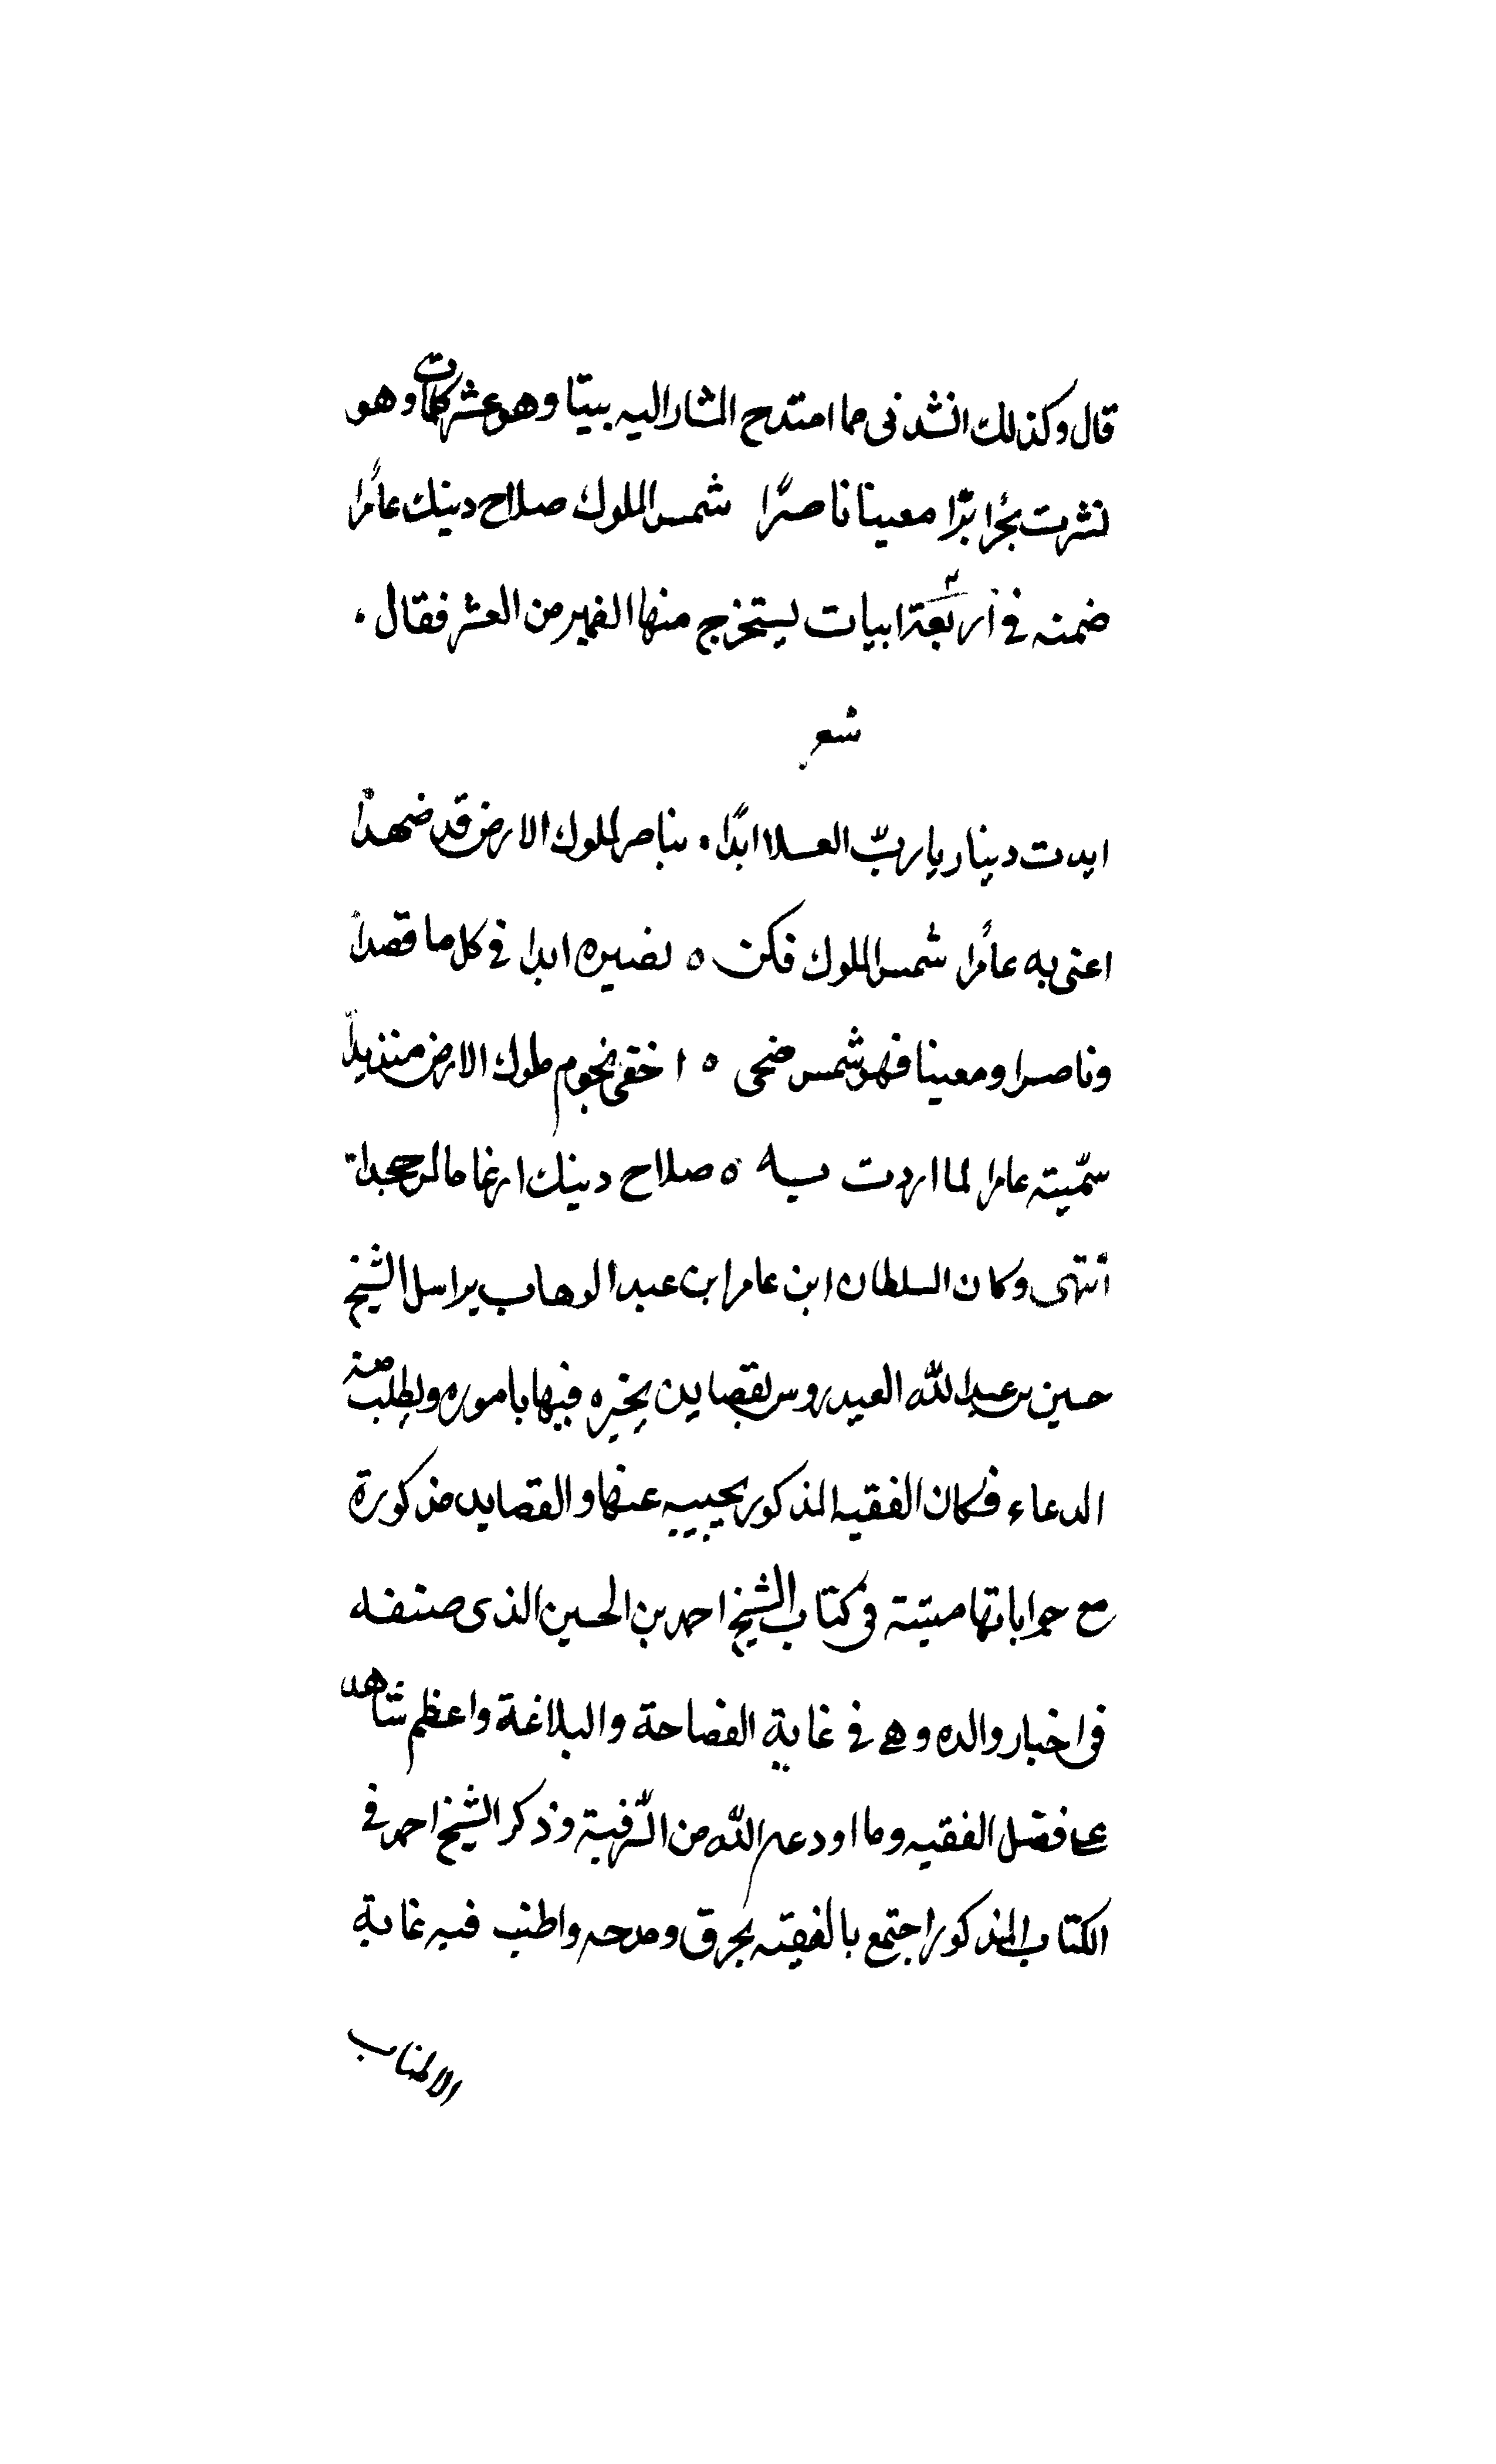 قال وكذلك انشدنى مما امتدح المشار اليه ببيتا وهو عشر كلمات وهو
نشرت بحرا برّا معينا ناصرًا شمس الملوك صلاح دينك عامرا
ضمنه في أربعة ابيات ليستخرج منها الضمير من العشر فقال
شعر
ايدت دينا يا ربّ العلا ابدًا بناصر لملوك الارض قد ضهدا
اعنى به عامرا شمس الملوك فكن ٥ نصيره ابدا في كل ما قصدا
وناصرا ومعينا فهو شمس ضحى ٥ اخفى نجوم ملوك الارض منذ بدا
سمّيته عامرا لما اردت به ٥ صلاح دينك ارغاما لمن جحدا
أنتهى وكان السلطان ابن عامر ابن عبد الوهاب يراسل الشيخ
حسين بن عبد الله العيدروس بقصايد يخبره فيها باموره ويطلب منه
الدعاء فكان الفقيه المذكور يجيبه عنها والقصايد مذكورة
مع جواباتها مبيتة في كتاب الشيخ احمد بن الحسين الذى صنفه
فى اخبار والده وهى في غاية الفصاحة والبلاغة واعظم شاهد
على فضل الفقيه وما اودعه الله من وذكر الشيخ احمد في
الكتاب المذكور اجتمع بالفقيه بحرق ومدحه واطنب فيه غاية
الاطناب